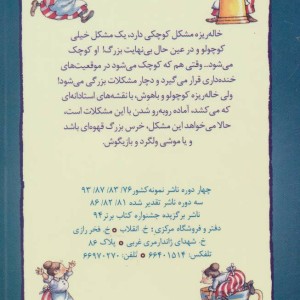 خاله‌ریزه مشکل کوچکی دارد، یک مشکل خیلی
کوچولو و در عین حال بی‌نهایت بزرگ! او کوچک
می‌شود.. وقتی هم که کوچک می‌شود در موقعیت‌های
خنده‌داری قرار می‌گیرد و دچار مشکلات بزرگی می‌شود!
ولی خاله‌ریزه کوچولو و باهوش، با نقشه‌های استادانه‌ای
که می‌کشد، آماده روبه‌رو شدن با این مشکلات است،
حالا می‌خواهد این مشکل، خرس بزرگ قهوه‌ای باشد
و یا موشی ولگرد و بازیگوش.
چهار دوره ناشر نمونه کشور ۷۶/ ۸۳/ ۸۷/ ۹۳
سه دوره ناشر تقدیر شده ۸۱/ ۸۲/ ۸۶
ناشر برگزیده جشنواره کتاب برتر ۹۴
دفتر و فروشگاه مرکزی: خ. انقلاب خ. فخر رازی
خ. شهدای ژاندارمری غربی پلاک ۸۶
تلفکس: ۶۶۴۰۱۵۱۴ تلفن: ۶۶۹۷۰۲۷۰